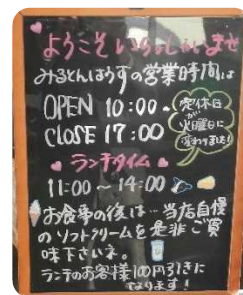 ようこそいらっしゃいませ
みるとんはうすの営業時間は
OPEN 10:00
CLOSE 17:00
定休日
が
火曜日に
変わりました!
ランチタイム
11:00~14:00
お食事の後は…当店自慢
のソフトクリームを是非ご賞
味下さいネ。
ランチのお客様100円引きに
なります!